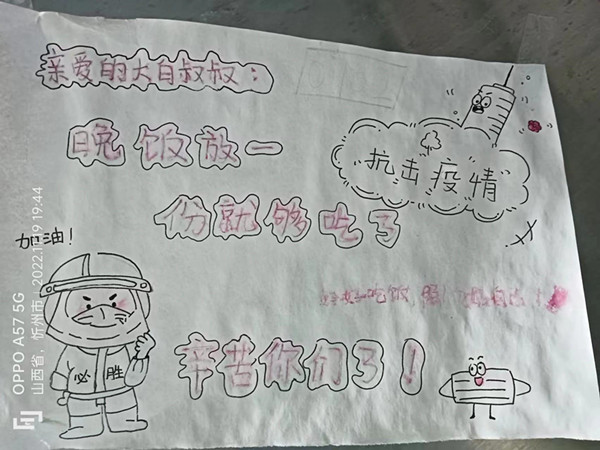 亲爱的大白叔叔：
晚饭放一
份就够吃了
抗击疫情
加油！
吃饭，
必胜
辛苦你们了！
OPPO A57 5G
山西省，忻州市，2022.11.19 19:44